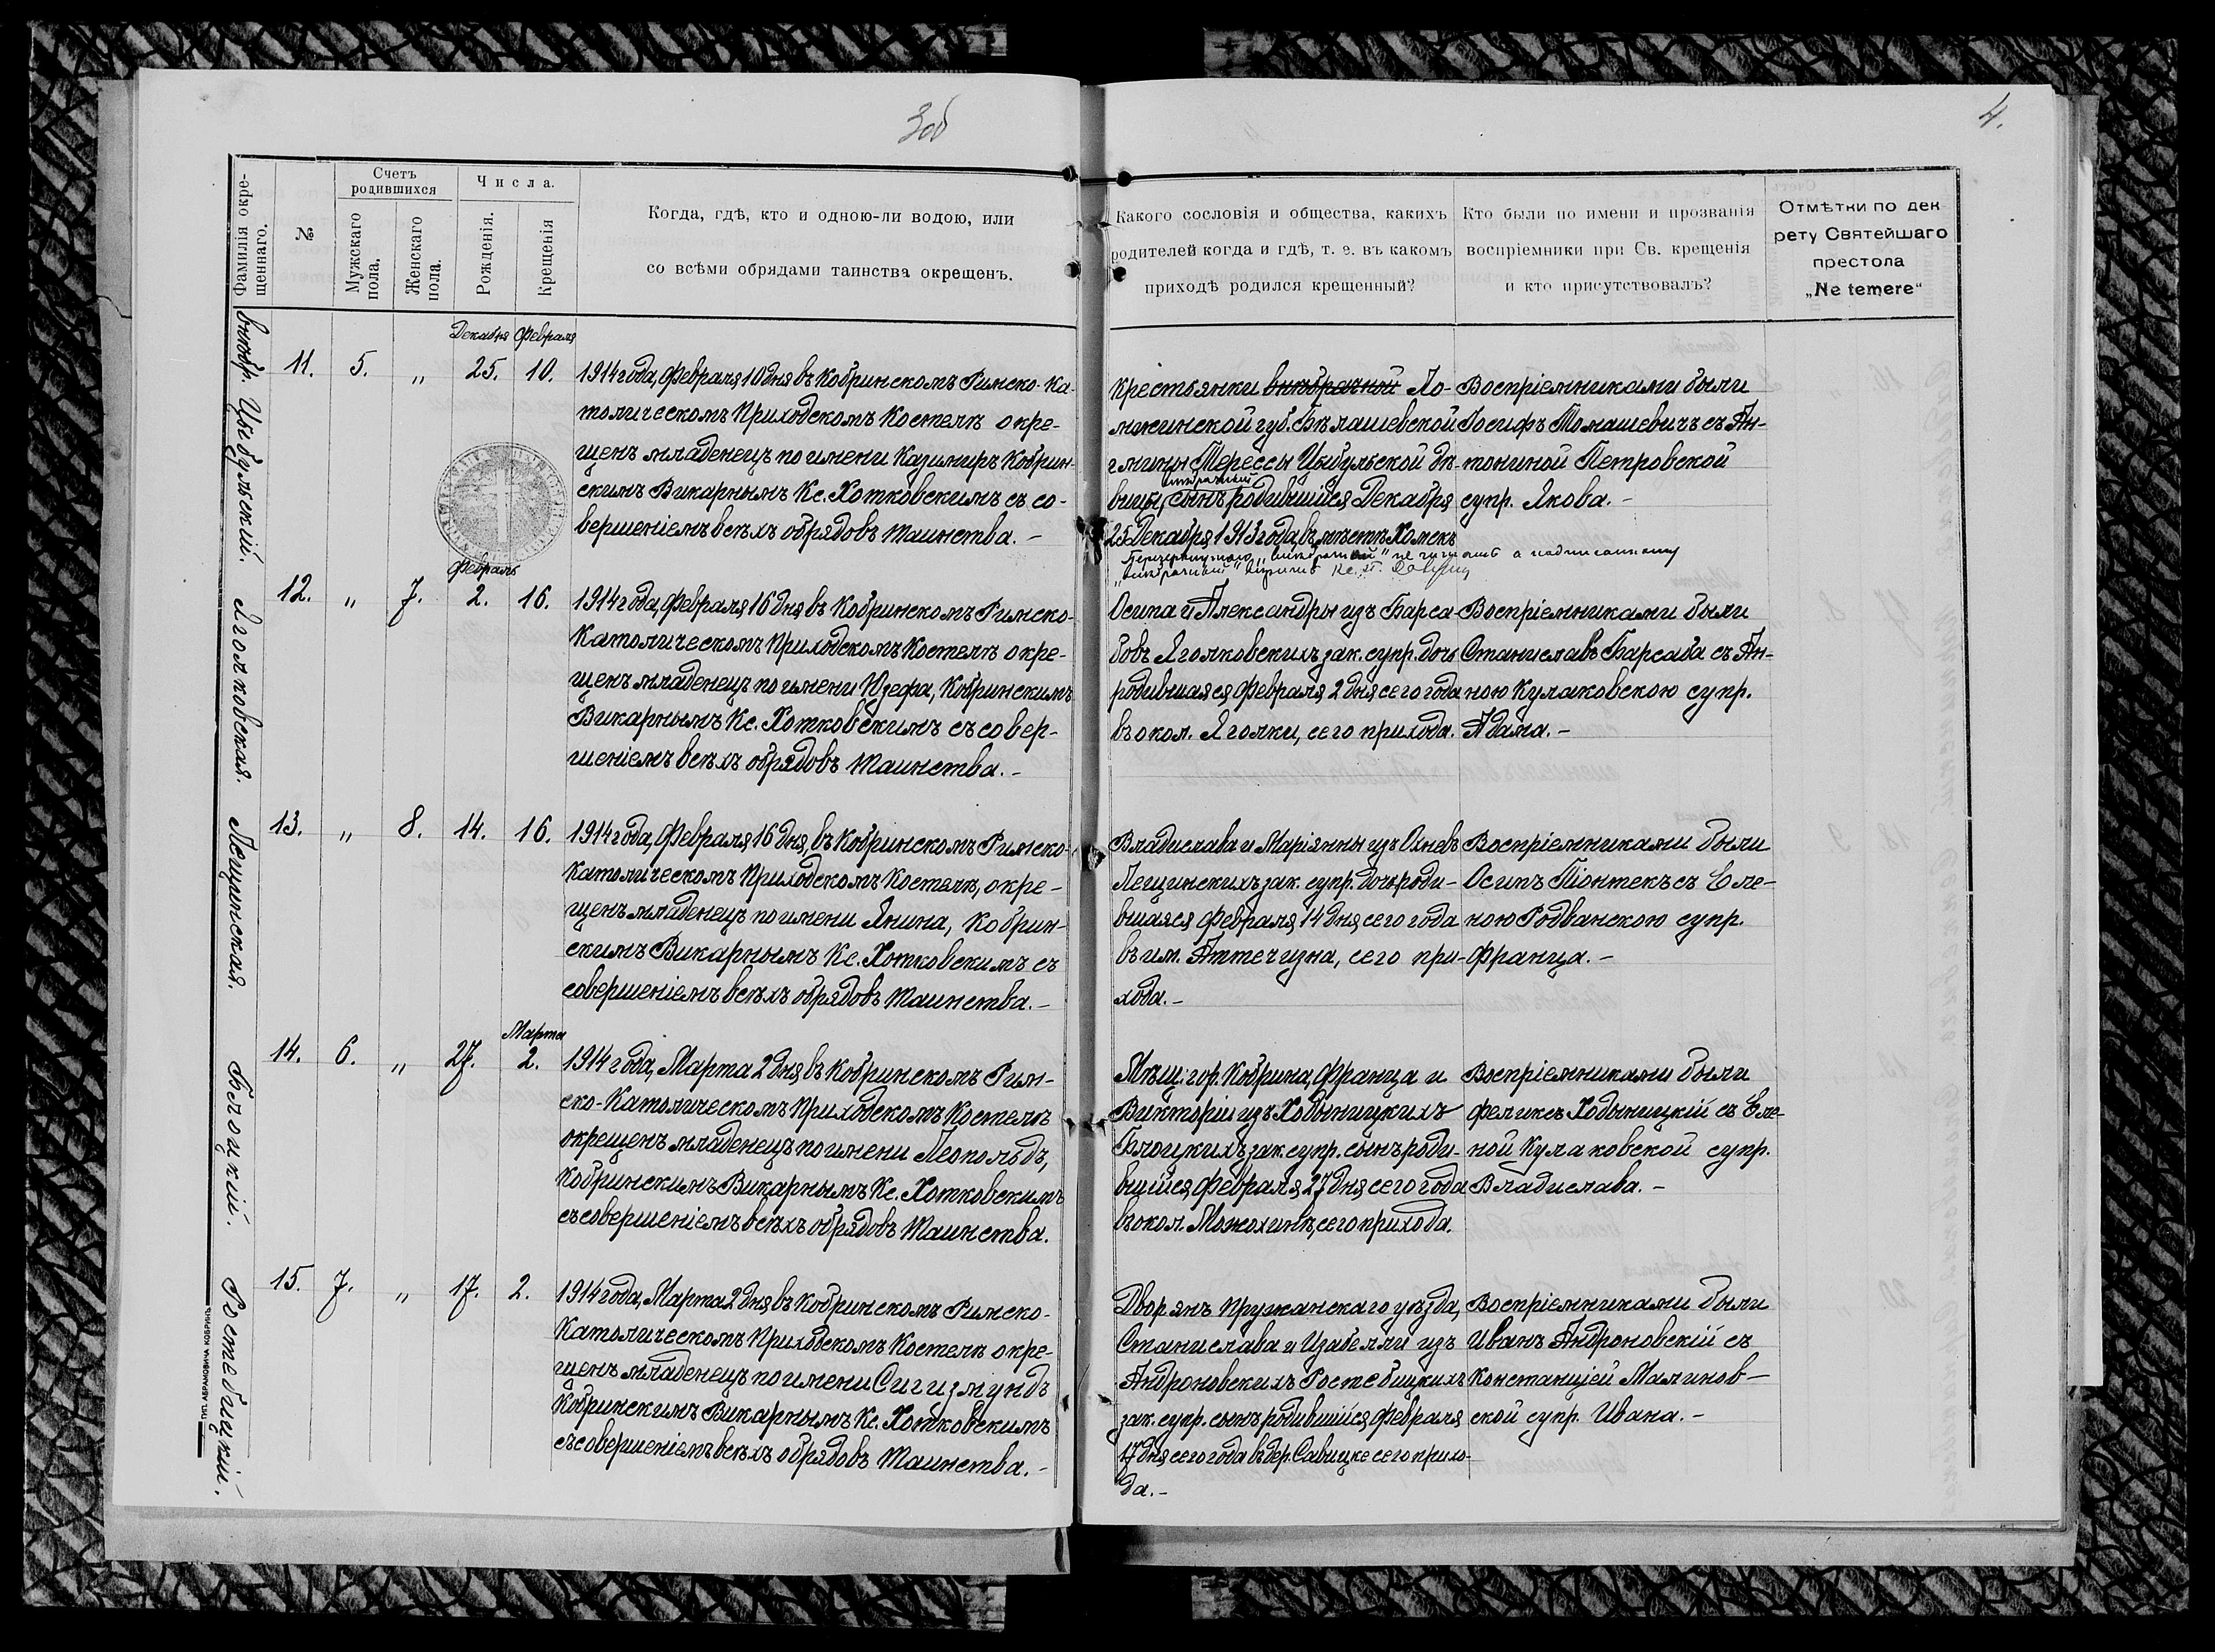 3об
4.
Фамилія окре-
щеннаго.
№
Счетъ
родившихся
Мужскаго
пола.
Женскаго
пола.
Числа.
Рожденія.
Крещенія
Когда, гдѣ, кто и одною-ли водою, или
со всѣми обрядами таинства окрещенъ.
Какого сословія и общества, какихъ
родителей когда и гдѣ, т. е. въ какомъ
приходѣ родился крещенный?
Кто были по имени и прозванія
воспріемники при Св. крещенія
и кто присутствовалъ?
Отмѣтки по дек
рету Святейшаго
престола
„Ne temere“
внѣбр. Цыбульскій.
11.
5.
„
Декабря
25.
Февраля
10.
1914 года, Февраля 10 дня въ Кобринскомъ Римско-Ка-
толическомъ Приходскомъ Костелѣ окре-
щенъ младенецъ по имени Казимиръ Кобрин-
скимъ Викарнымъ Кс. Хотковскимъ съ со-
вершеніемъ всѣхъ обрядовъ таинства. –
Крестьянки внѣбрачной Ло-
мжинской губ. Бѣлашевской
гмины Терессы Цыбульской дѣ-
внѣбрачный
вицы, сынъ родившійся Декабря
25 Декабря 1913 года, въ мѣстѣ Хомскъ
не читать а надписанному
Кс.
Воспріемниками были
Іосифъ Томашевичъ съ Ан-
тониной Петровской
супр. Якова. –
Яголковская.
12.
„
7.
Февраль
2.
16.
1914 года, Февраля 16 дня въ Кобринскомъ Римско-
Католическомъ Приходскомъ Костелѣ окре-
щенъ младенецъ по имени Юзефа, Кобринскимъ
Викарнымъ Кс. Хотковскимъ съ совер-
шеніемъ всѣхъ обрядовъ таинства. –
Осипа и Александры изъ Барса
бовъ Яголковскихъ зак. супр. дочь
родившаяся Февраля 2 дня сего года
въ окол. Яголки, сего прихода.
Воспріемниками были
Станиславъ Барсаба съ Ан-
ною Кулаковскою супр.
Адама. –
Лещинская.
13.
„
8.
14.
16.
1914 года, Февраля 16 дня, въ Кобринскомъ Римско-
Католическомъ Приходскомъ Костелѣ, окре-
щенъ младенецъ по имени Янина, Кобрин-
скимъ Викарнымъ Кс. Хотковскимъ съ
совершеніемъ всѣхъ обрядовъ таинства. –
Владислава и Маріянны изъ
Лещинскихъ зак. супр. дочь роди-
вшаяся Февраля 14 дня сего года
въ им. Аттечизна, сего при-
хода. –
Воспріемниками были
Осипъ Піонтекъ съ Еле-
ною Родванскою супр.
Франца. –
Блоцкій.
14.
6.
„
27.
Марта
2.
1914 года, Марта 2 дня въ Кобринскомъ Рим-
ско-Католическомъ Приходскомъ Костелѣ
окрещенъ младенецъ по имени Леопольдъ,
Кобринскимъ Викарнымъ Кс. Хотковскимъ
съ совершеніемъ всѣхъ обрядовъ таинства.
Мѣщ. гор. Кобрина, Франца и
Викторіи изъ Ходыницкихъ
Блоцкихъ зак. супр. сынъ роди-
вшійся Февраля 27 дня сего года
въ окол. Можохинѣ, сего прихода.
Воспріемниками были
Феликсъ Ходыницкій съ Еле-
ной Кулаковской супр.
Владислава. –
Ростебицкій.
15.
7.
„
17.
2.
1914 года, Марта 2 дня въ Кобринскомъ Римско-
Католическомъ Приходскомъ Костелѣ окре-
щенъ младенецъ по имени Сигизмундъ
Кобринскимъ Викарнымъ Кс. Хотковскимъ
съ совершеніемъ всѣхъ обрядовъ таинства. –
Дворянъ Пружанскаго уѣзда,
Станислава и Изабелли изъ
Андроновскихъ Ростебицкихъ
зак. супр. сынъ родившійся Февраля
17 дня сего года въ дер. Савицке сего прихо-
да. –
Воспріемниками были
Иванъ Андроновскій съ
Констанціей Малинов-
ской супр. Ивана. –
ТИП. АБРАМОВИЧА КОБРИНЪ